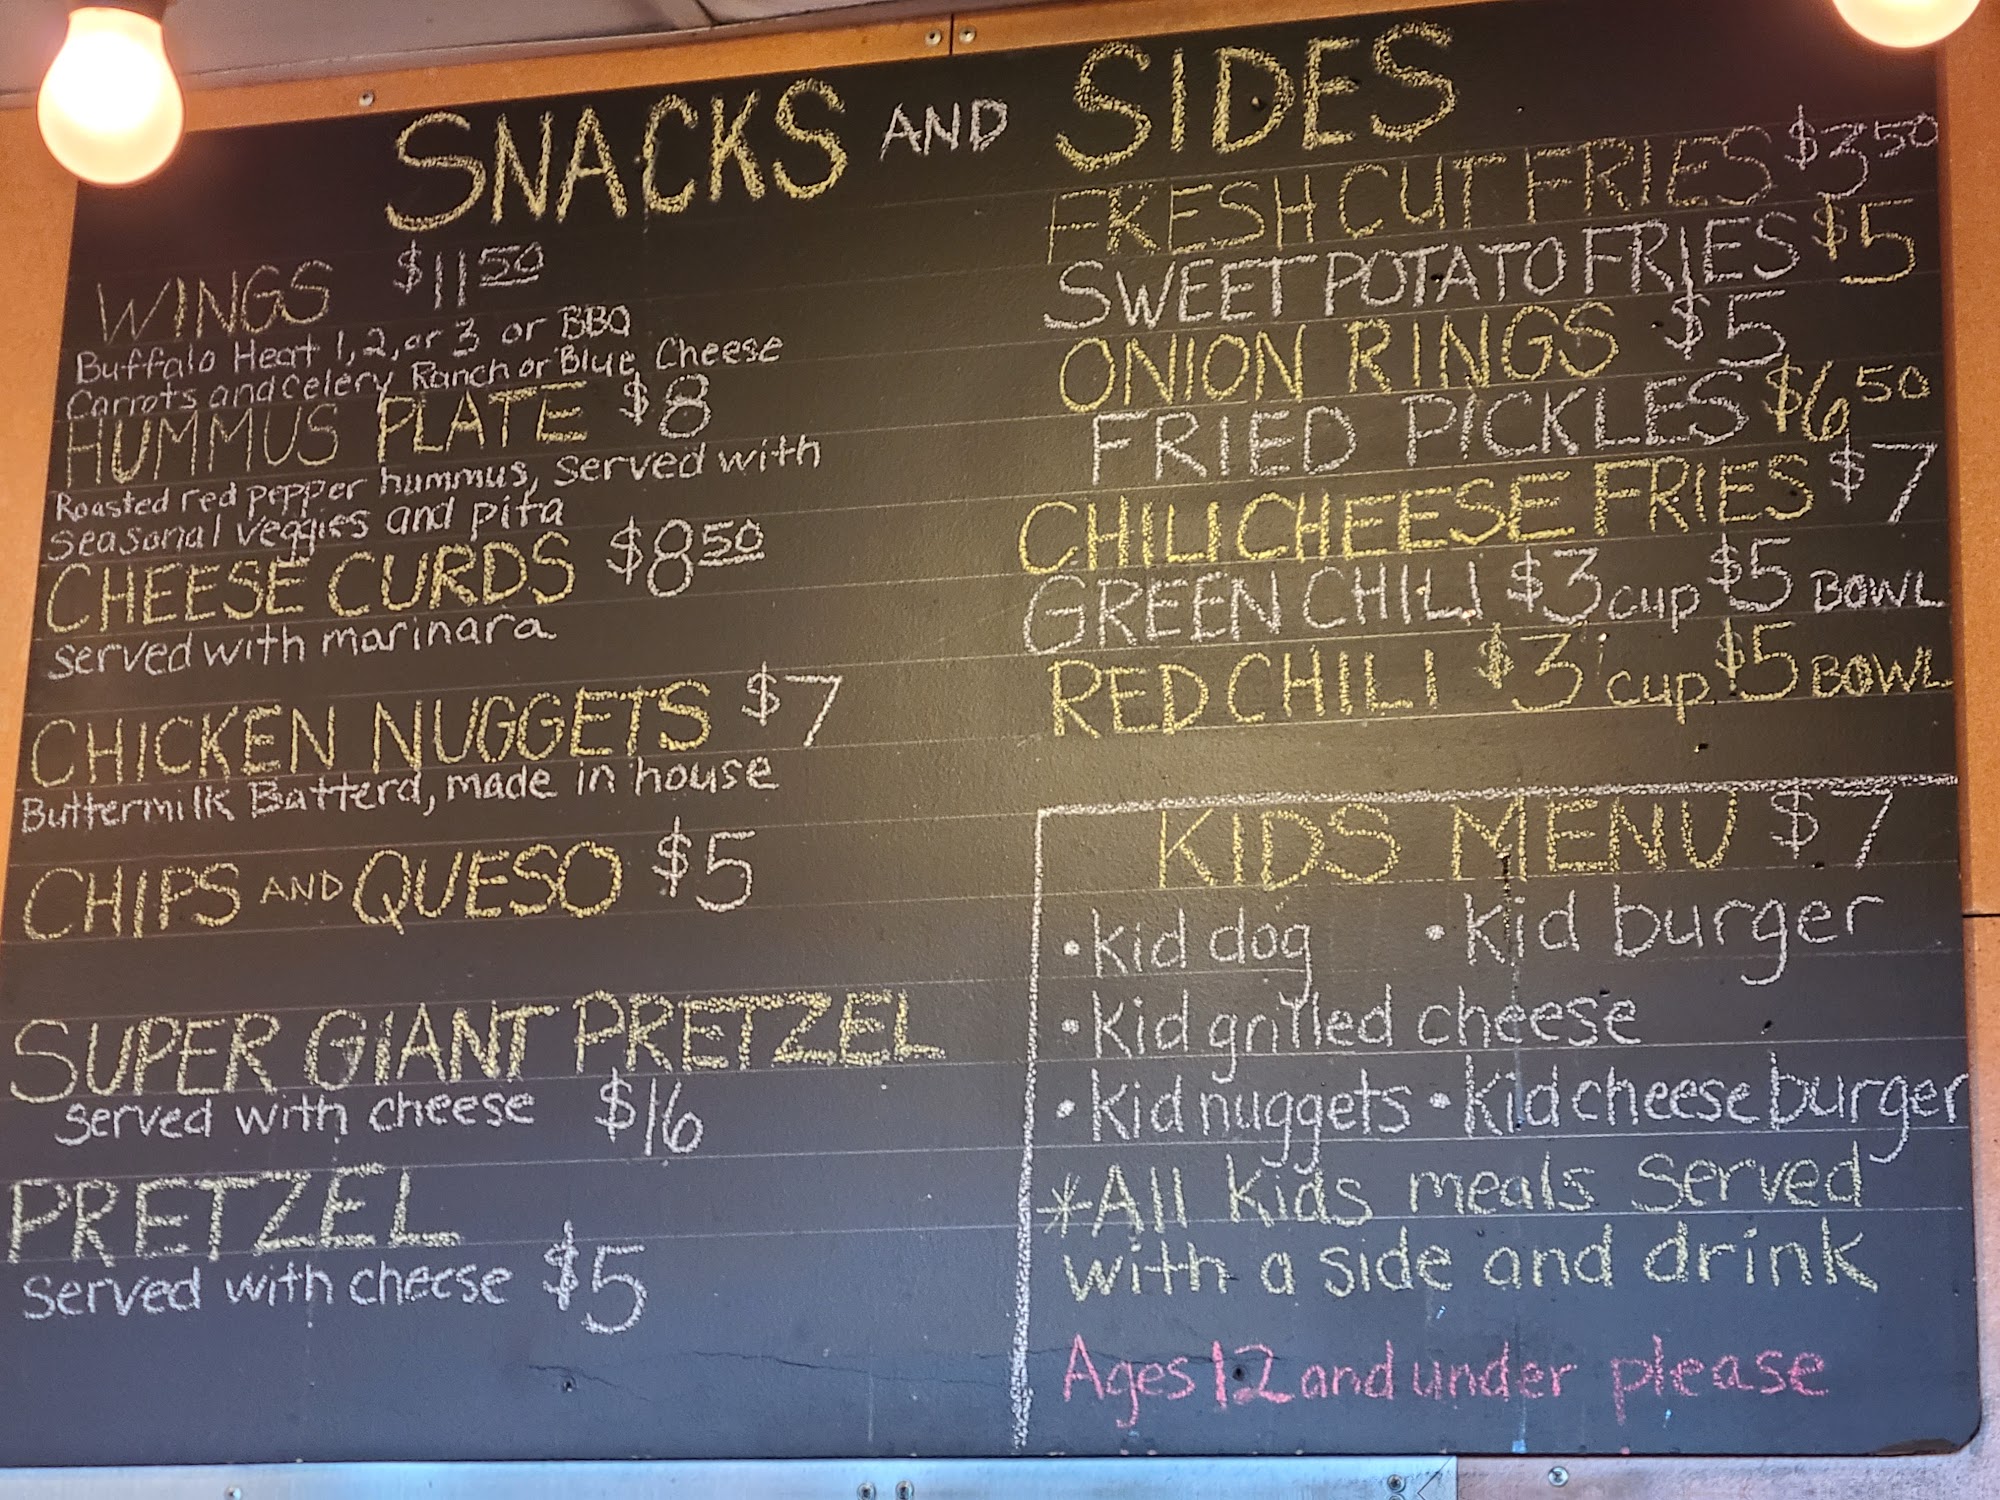 SNACKS AND SIDES
WINGS $11 50
Buffalo Heat 1, 2, or 3 or BBQ
Carrots and Celery Ranch or Blue Cheese
HUMMUS PLATE $8
Roasted red pepper hummus, served with
seasonal veggies and pita
CHEESE CURDS $8 50
served with marinara
CHICKEN NUGGETS $7
Buttermilk Batterd, made in house
CHIPS AND QUESO $5
SUPER GIANT PRETZEL
served with cheese $16
PRETZEL
served with cheese $5
FRESH CUT FRIES $3 50
SWEET POTATO FRIES $5
ONION RINGS $5
FRIED PICKLES $6 50
CHILI CHEESE FRIES $7
GREEN CHILI $3 cup $5 BOWL
RED CHILI $3 cup $5 BOWL
KIDS MENU $7
• kid dog • kid burger
• kid grilled cheese
• kid nuggets • kid cheese burger
*All kids meals served
with a side and drink
Ages 12 and under please